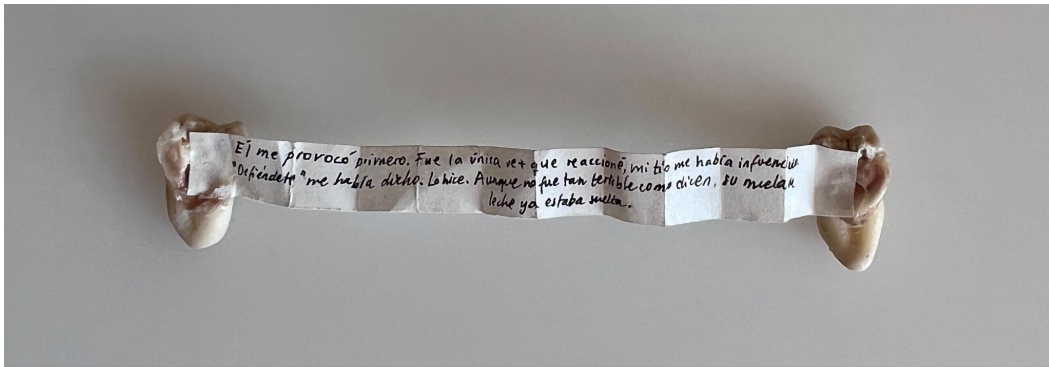 Él me provocó primero. Fue la única vez que reaccioné, mi tío me había influenciado.
"Defiéndete" me había dicho. Lo hice. Aunque no fue tan terrible como dicen, su muela de
leche ya estaba suelta.